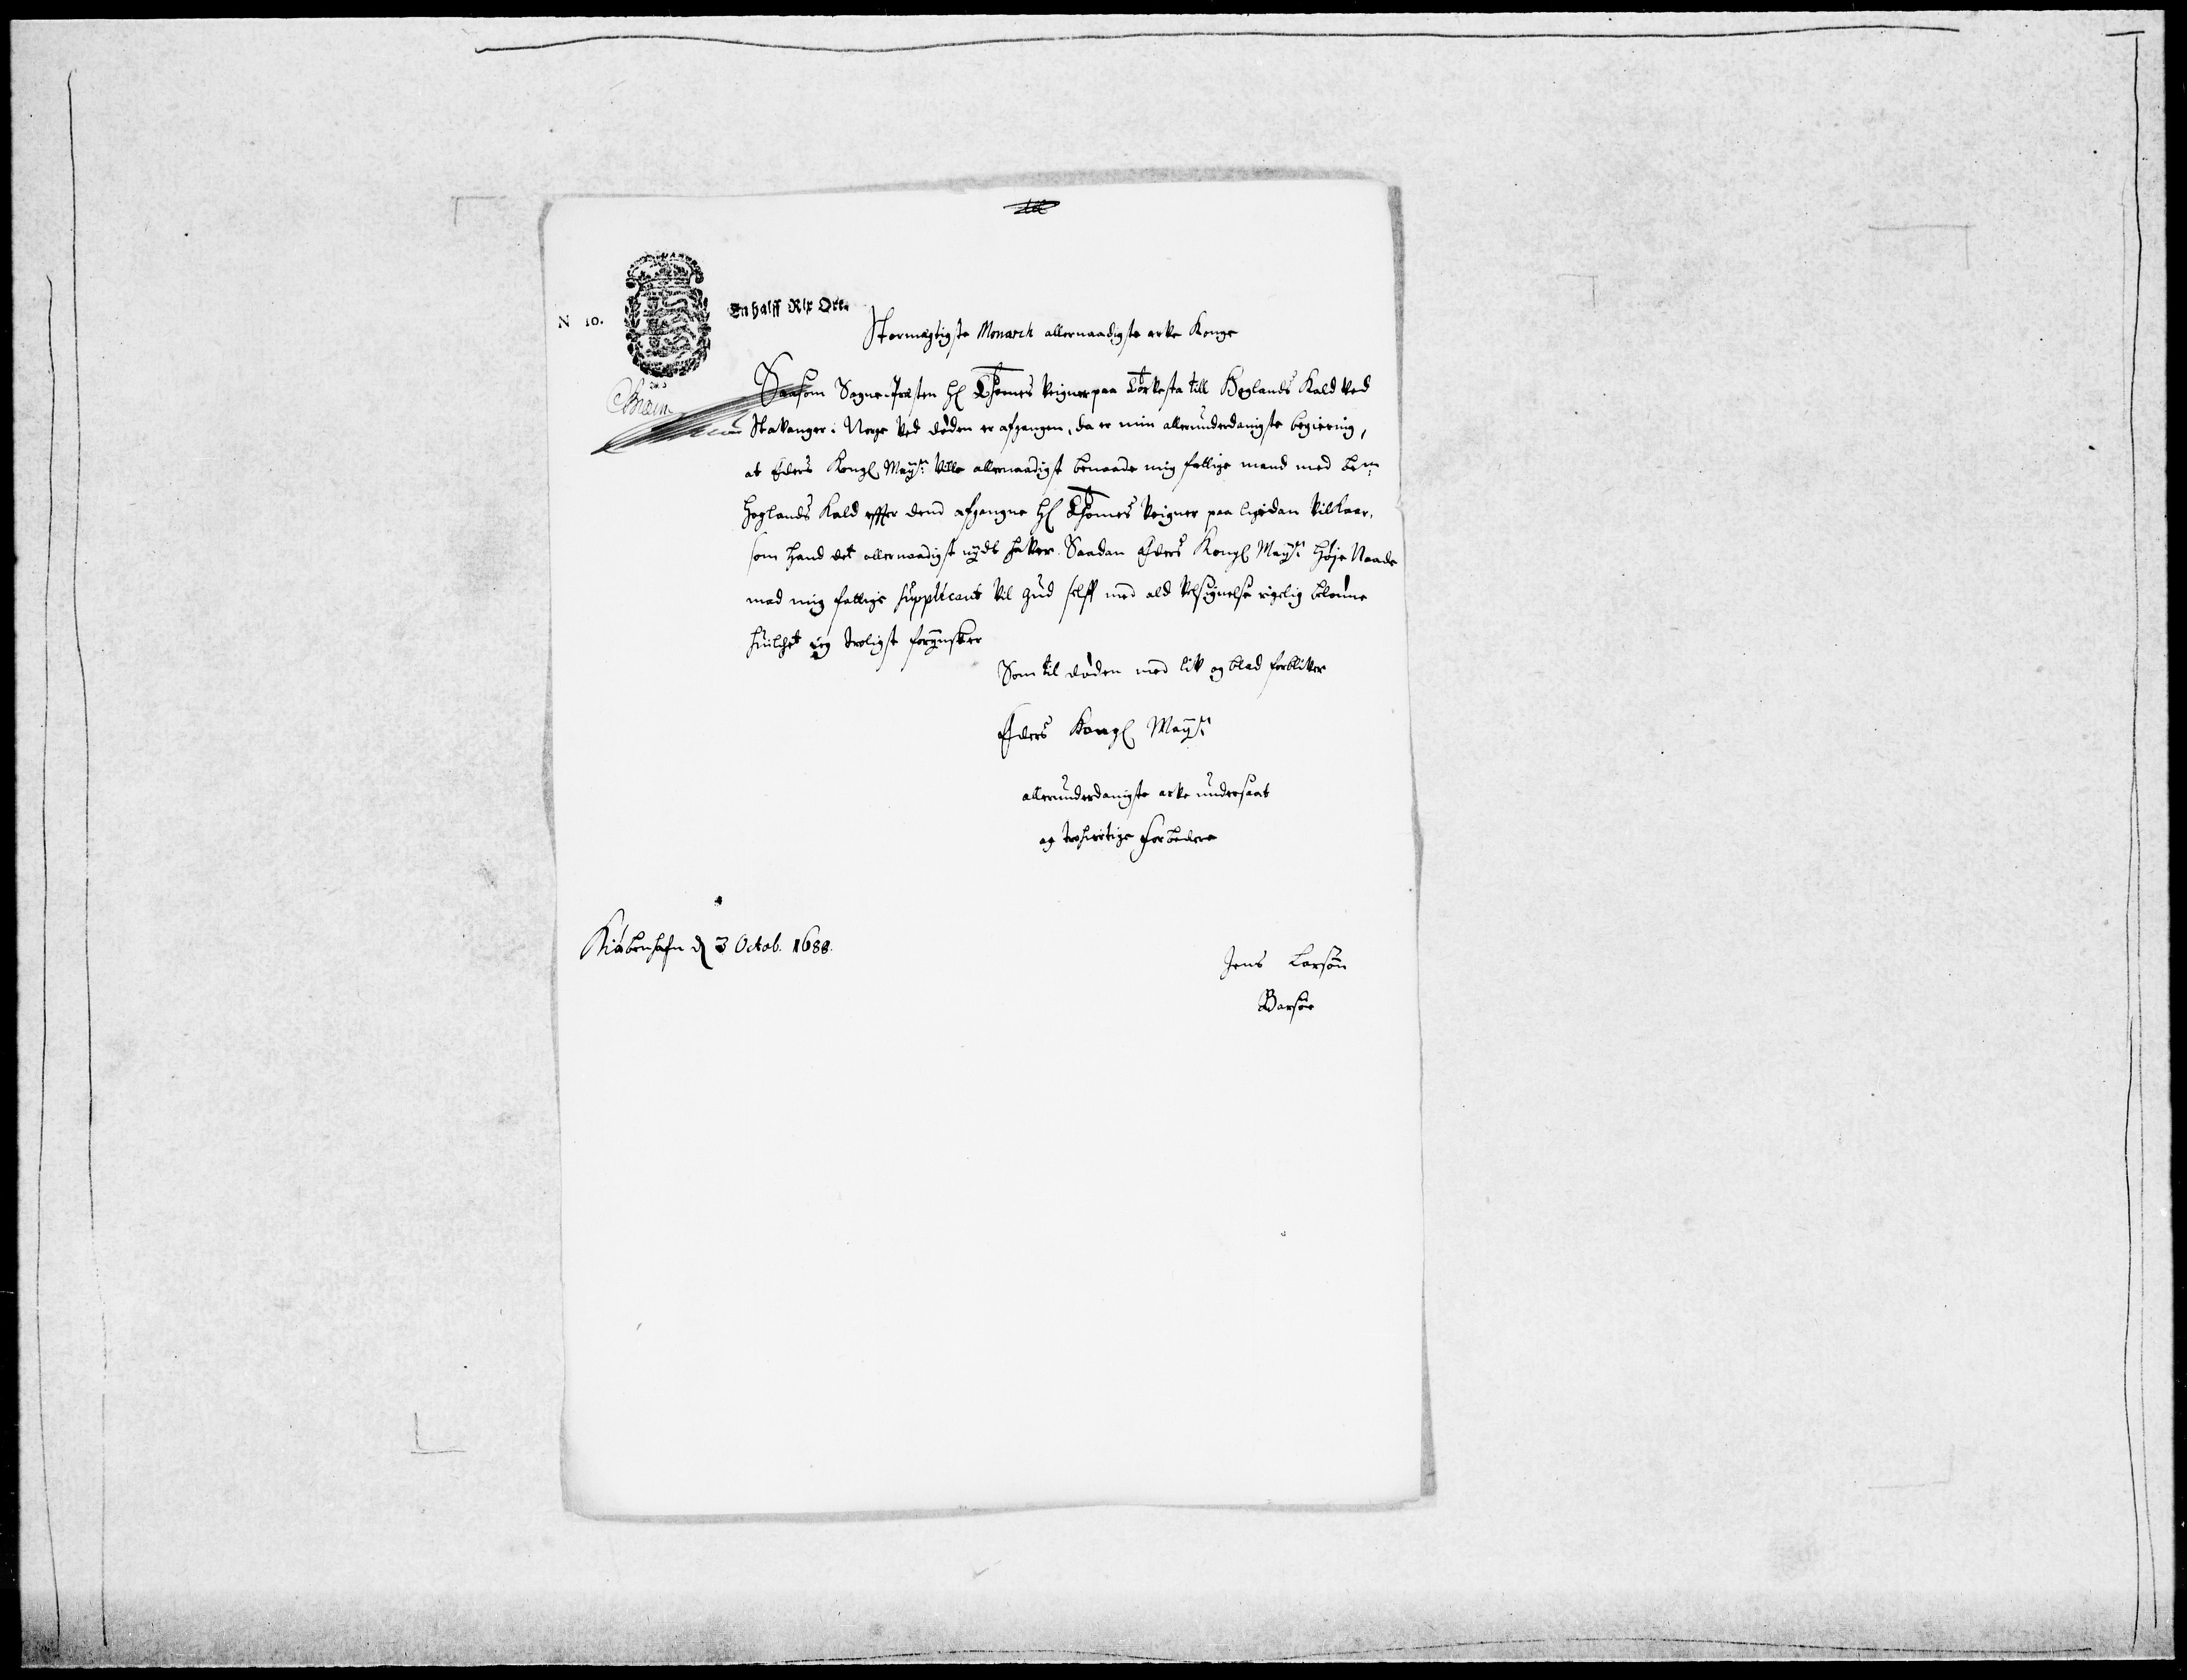 N 10.
En halff Rix Ort.
Stormegtigste Monarch allernaadigste arfve Konge
Saasom Sogne-Præsten Hl Thomes Veigner paa Torvesta till Hoglands Kald ved
Stavanger i Norge ved døden er afgangen, da er min allerunderdanigste begiering,
at Eders Kongl Mayst: ville allernaadigst benaade mig fattige mand med bem:
Hoglands Kald effter dend afgangne Hl Thomes Veigner paa ligedan vilkaar,
som hand det allernaadigst nydt haver. Saadan Eders Kongl Mayst: Høje Naade
mod mig fattige supplicant vil Gud selff med ald velsignelse rigelig belønne
huilchet ieg troligst forynsker
Som til døden med liv og blod forbliver
Eders Kongl Mayst:
allerunderdanigste arfve undersaat
og trohiertige forbedere
Kiøbenhafn d 3 Octob. 1688.
Jens Larsøn
Barsøe